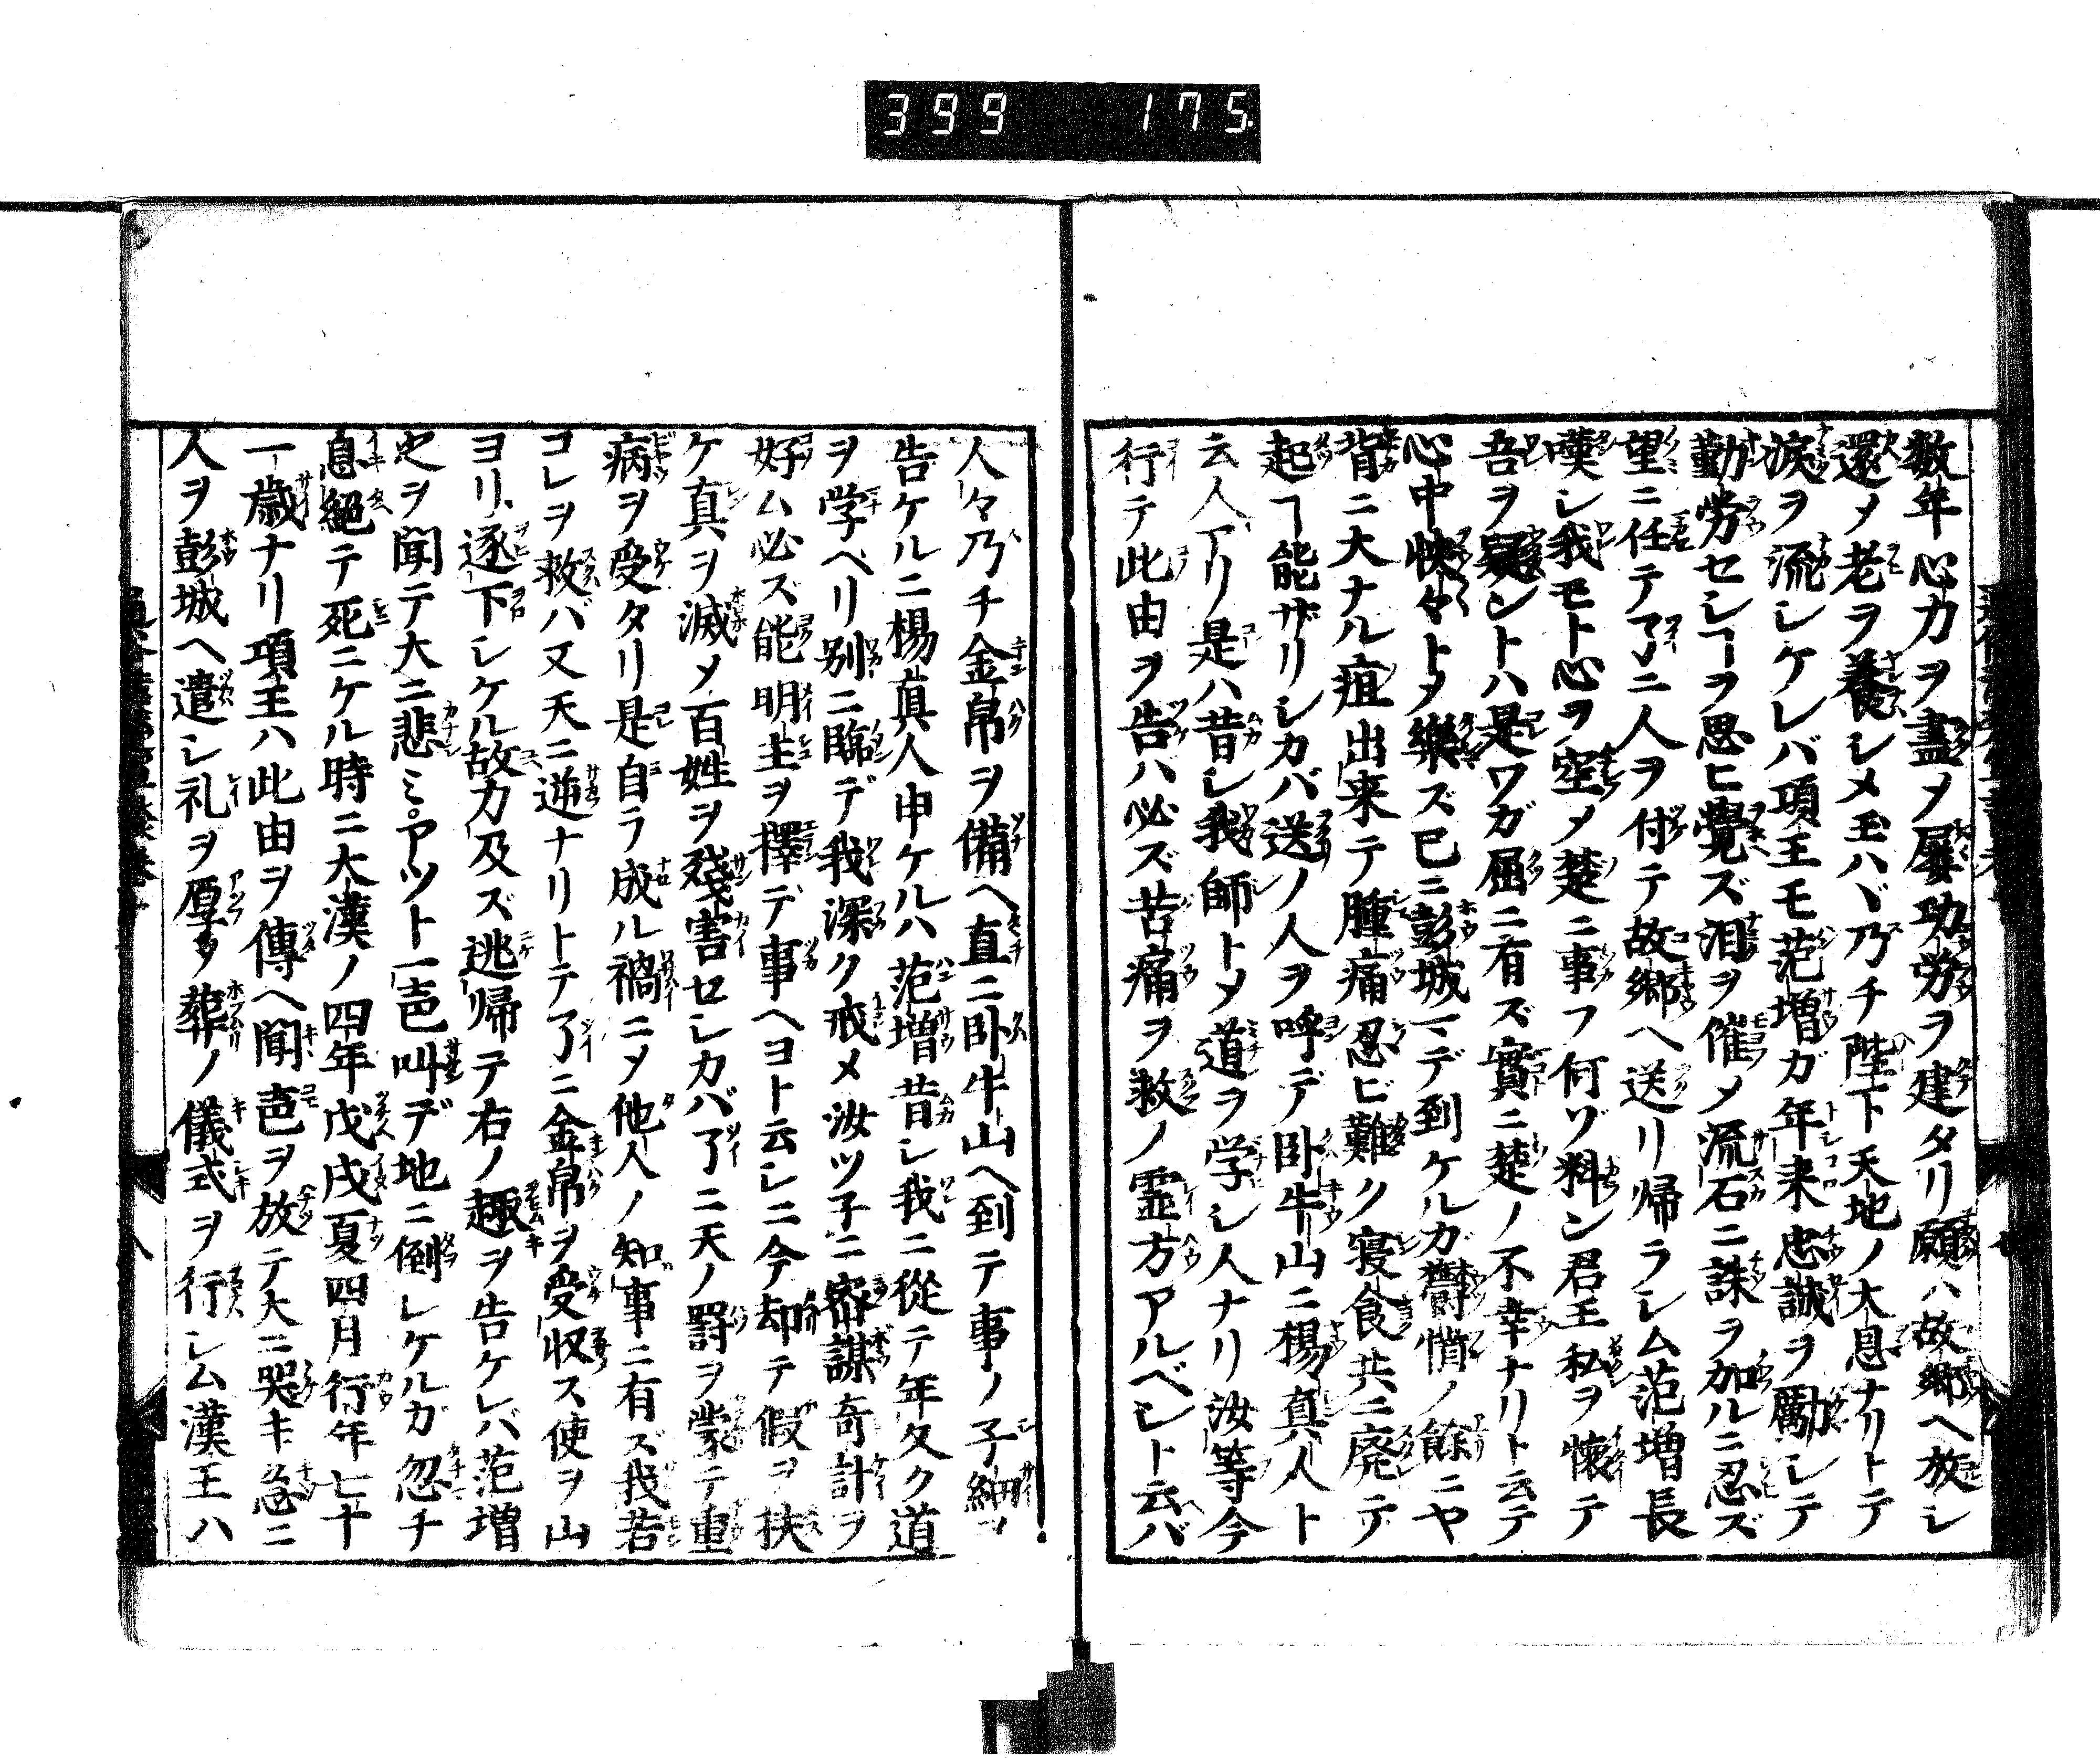 399 175.
数年心力ヲ盡メ屡功労ヲ建タリ願ハ故郷ヘ放シ
還メ老ヲ養シメ玉ハヾ乃チ陛下天地ノ大息ナリトテ
涙ヲ流シケレバ項王モ范増ガ年来忠誠ヲ勵シテ
勤労セシヿヲ思ヒ覺ズ泪ヲ催メ流石ニ誅ヲ加ルニ忍ズ
望ニ任テ了ニ人ヲ付テ故郷ヘ送リ帰ラシム范増長
嘆シ我モト心ヲ空メ楚ニ事フ何ゾ料ン君王私ヲ懐テ
吾ヲ疑ントハ是ワガ屈ニ有ズ實ニ楚ノ不幸ナリト云テ
心中怏々トメ樂ズ已ニ彭城マデ到ケルカ欝憤ノ餘ニヤ
背ニ大ナル疽出来テ腫痛忍ビ難ク寝食共ニ廃テ
起ヿ能ザリシカバ送ノ人ヲ呼デ卧牛山ニ楊真人ト
云人アリ是ハ昔シ我師トメ道ヲ学シ人ナリ汝等今
行テ此由ヲ告ハ必ズ苦痛ヲ救ノ霊方アルベシト云バ
人々乃チ金帛ヲ備ヘ直ニ卧牛山ヘ到テ事ノ子細ヲ
告ケルニ楊真人申ケルハ范増昔シ我ニ從テ年久ク道
ヲ学ベリ別ニ臨デ我深ク戒メ汝ツ子ニ密謀奇計ヲ
好ム必ズ能明主ヲ擇デ事ヘヨト云シニ今却テ假ヲ扶
ケ真ヲ滅メ百姓ヲ殘害セシカバ了ニ天ノ罸ヲ蒙テ重
病ヲ受タリ是自ラ成ル禍ニメ他人ノ知事ニ有ズ我若
コレヲ救バ又天ニ逆ナリトテ了ニ金帛ヲ受収ス使ヲ山
ヨリ逐下シケル故力及ズ逃帰テ右ノ趣ヲ告ケレバ范増
史ヲ聞テ大ニ悲ミアツト一声叫デ地ニ倒レケルカ忽チ
息絕テ死ニケル時ニ大漢ノ四年戊戌夏四月行年七十
一歳ナリ項王ハ此由ヲ傳ヘ聞声ヲ放テ大ニ哭キ急ニ
人ヲ彭城ヘ遣シ礼ヲ厚メ葬ノ儀式ヲ行シム漢王ハ